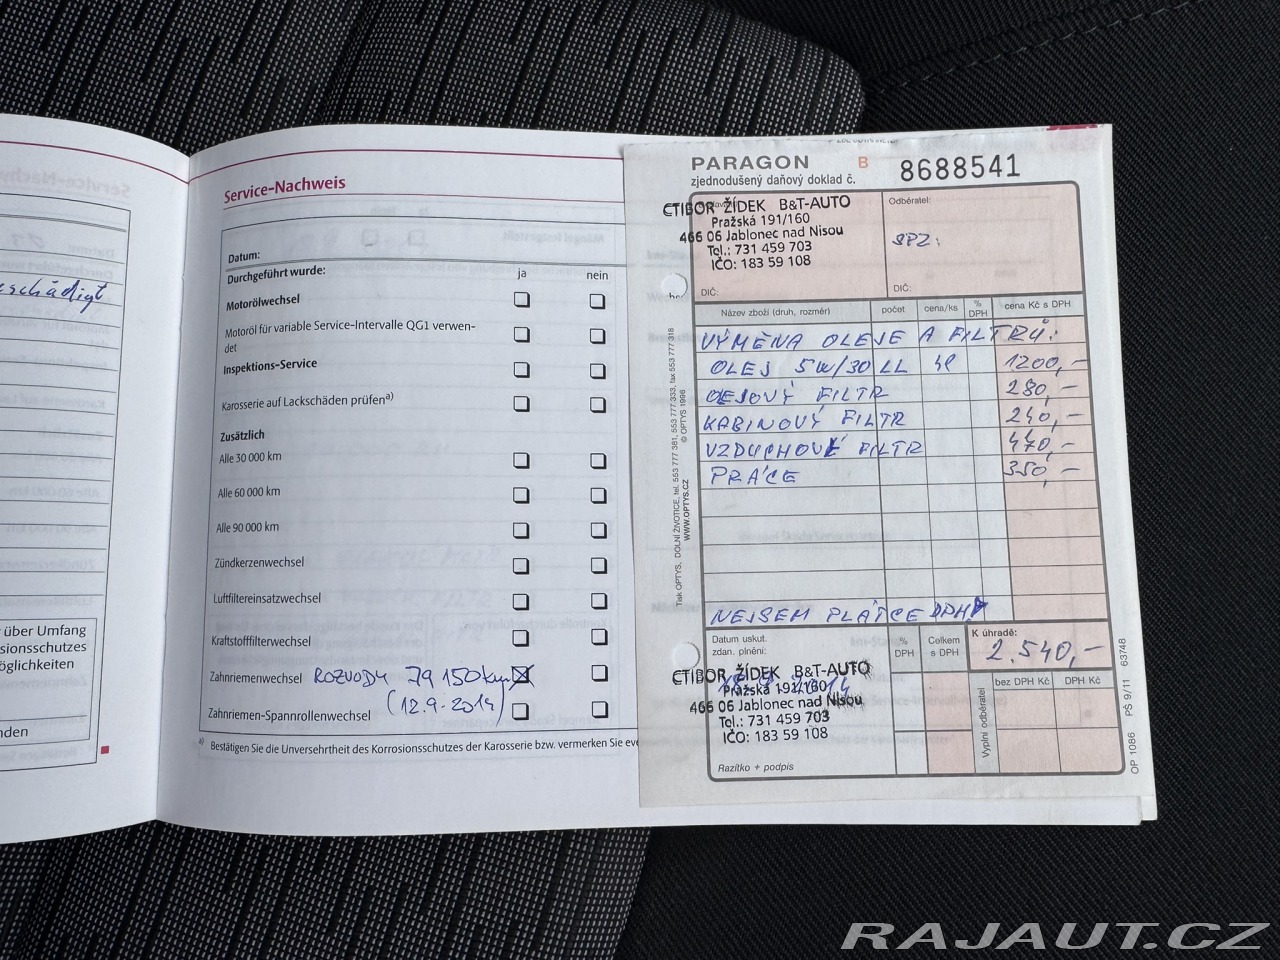 eschädigt
r über Umfang
sionsschutzes
öglichkeiten
nden
Service-Nachweis
Datum:
Durchgeführt wurde: ja nein
Motorölwechsel
Motoröl für variable Service-Intervalle QG1 verwen-
det
Inspektions-Service
Karosserie auf Lackschäden prüfen a)
Zusätzlich
Alle 30 000 km
Alle 60 000 km
Alle 90 000 km
Zündkerzenwechsel
Luftfiltereinsatzwechsel
Kraftstofffilterwechsel
Zahnriemenwechsel ROZVODY 79 150 km
Zahnriemen-Spannrollenwechsel (12.9.2014)
a) Bestätigen Sie die Unversehrtheit des Korrosionsschutzes der Karosserie bzw. vermerken Sie eve
PARAGON B 8688541
zjednodušený daňový doklad č.
CTIBOR ŽÍDEK B&T-AUTO
Pražská 191/160
466 06 Jablonec nad Nisou
Tel.: 731 459 703
IČO: 183 59 108
DIČ:
Odběratel:
SPZ:
DIČ:
Název zboží (druh, rozměr) počet cena/ks % DPH cena Kč s DPH
VÝMĚNA OLEJE A FILTRŮ:
OLEJ 5W/30 LL 4l 1200,-
OLEJOVÝ FILTR 280,-
KABINOVÝ FILTR 240,-
VZDUCHOVÝ FILTR 470,-
PRÁCE 350,-
NEJSEM PLÁTCE DPH
Datum uskut.
zdan. plnění:
% DPH
Celkem s DPH
K úhradě:
2.540,-
bez DPH Kč DPH Kč
Vyplní odběratel
CTIBOR ŽÍDEK B&T-AUTO
Pražská 191/160
466 06 Jablonec nad Nisou
Tel.: 731 459 703
IČO: 183 59 108
Razítko + podpis
Tisk OPTYS, DOLNÍ ŽIVOTICE, tel. 553 777 381, 553 777 333, fax 553 777 318
WWW.OPTYS.CZ © OPTYS 1996
OP 1086 PŠ 9/11 63748
RAJAUT.CZ